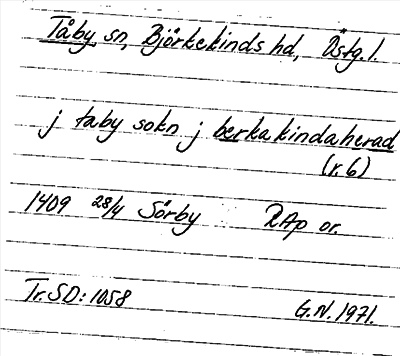 Tåby sn, Björkekinds hd, Östg.l.
j taby sokn j berkakindaherad
(r. 6)
1409 28/4 Sörby RAp or.
Tr. SD: 1058
G.N. 1971.